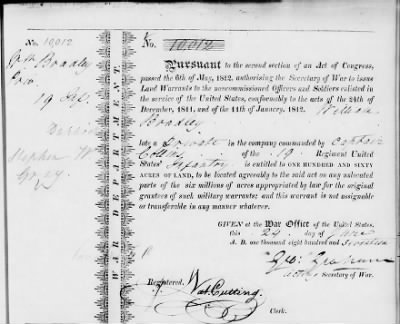 No. 10012
Wm Bradley
19 Inf.
Stephen W
Gray
WAR DEPARTMENT.
No. 10012
Pursuant to the second section of an Act of Congress,
passed the 6th of May, 1812, authorising the Secretary of War to issue
Land Warrants to the noncommissioned Officers and Soldiers enlisted in
the service of the United States, conformably to the acts of the 24th of
December, 1811, and of the 11th of January, 1812. William
Bradley
late a Private in the company commanded by Captain
Collins of the 19 Regiment United
States' Infantry is entitled to ONE HUNDRED AND SIXTY
ACRES OF LAND, to be located agreeably to the said act on any unlocated
parts of the six millions of acres appropriated by law for the original
grantees of such military warrants; and this warrant is not assignable
or transferable in any manner whatever.
GIVEN at the War Office of the United States,
this 24 day of June
A. D. one thousand eight hundred and seventeen
Geo: Graham
acting Secretary of War.
Registered, Nat Cutting
Clerk.